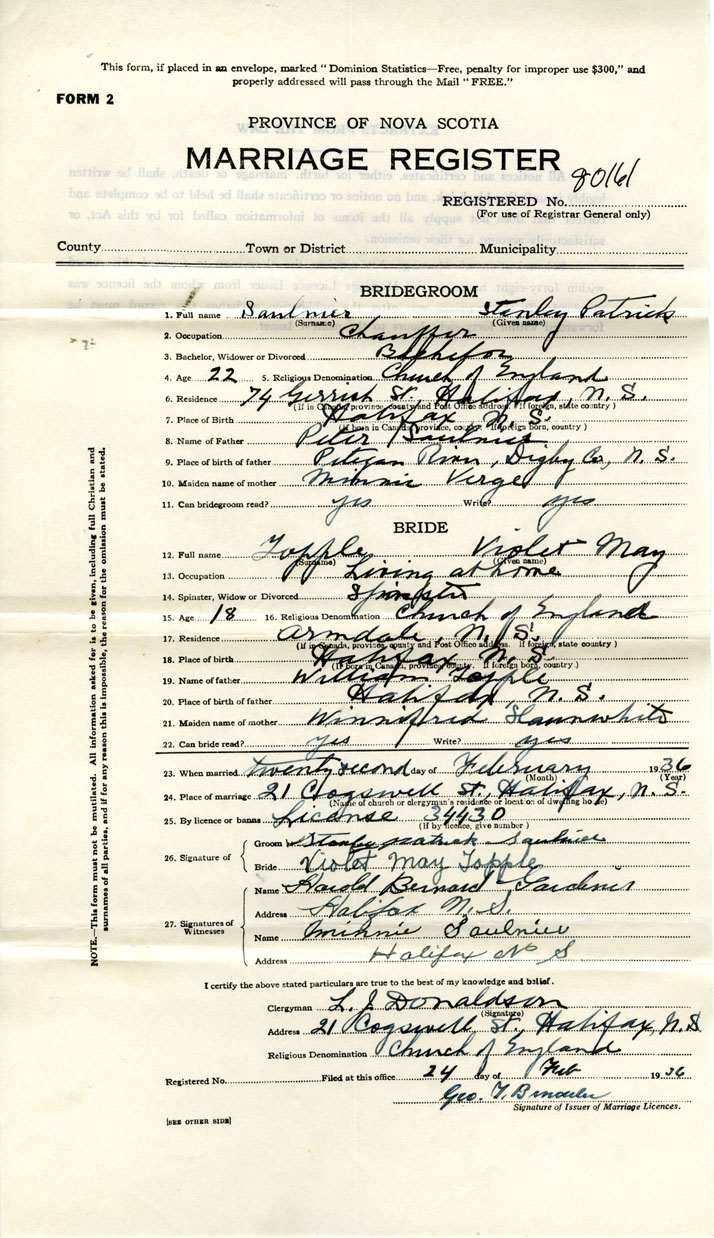 This form, if placed in an envelope, marked "Dominion Statistics—Free, penalty for improper use $300," and
properly addressed will pass through the Mail "FREE."
FORM 2
PROVINCE OF NOVA SCOTIA
MARRIAGE REGISTER
80161
REGISTERED No.
(For use of Registrar General only)
County Town or District Municipality
BRIDEGROOM
1. Full name Saulnier Stanley Patrick
(Surname) (Given name)
2. Occupation Chauffer
3. Bachelor, Widower or Divorced Bachelor
4. Age 22 5. Religious Denomination Church of England
6. Residence 74 Gerrish St. Halifax, N. S.
(If in Canada, province, county and Post Office address. If foreign, state country)
7. Place of Birth Halifax, N. S.
(If born in Canada, province, county. If foreign born, country)
8. Name of Father Peter Saulnier
9. Place of birth of father River, Digby Co, N. S.
10. Maiden name of mother Minnie Verge
11. Can bridegroom read? yes Write? yes
BRIDE
12. Full name Topple Violet May
(Surname) (Given name)
13. Occupation Living at home
14. Spinster, Widow or Divorced Spinster
15. Age 18 16. Religious Denomination Church of England
17. Residence Armdale, N. S.
(If in Canada, province, county and Post Office address. If foreign, state country)
18. Place of birth Halifax, N. S.
(If born in Canada, province, county. If foreign born, country)
19. Name of father William Topple
20. Place of birth of father Halifax N. S.
21. Maiden name of mother Winnifred Slaunwhite
22. Can bride read? yes Write? yes
23. When married twenty second day of February 1936
(Month) (Year)
24. Place of marriage 21 Cogswell St, Halifax, N. S.
(Name of church or clergyman's residence or location of dwelling house)
25. By licence or banns License 34430
(If by licence, give number)
26. Signature of
Groom Stanley Patrick Saulnier
Bride Violet May Topple
27. Signatures of Witnesses
Name Harold Bernard
Address Halifax N. S.
Name Minnie Saulnier
Address Halifax N S
I certify the above stated particulars are true to the best of my knowledge and belief.
Clergyman L. J. Donaldson
(Signature)
Address 21 Cogswell St, Halifax, N. S
Religious Denomination Church of England
Registered No. Filed at this office 24 day of Feb 1936
Geo.
Signature of Issuer of Marriage Licences.
[SEE OTHER SIDE]
NOTE.—This form must not be mutilated. All information asked for is to be given, including full Christian and
surnames of all parties, and if for any reason this is impossible, the reason for the omission must be stated.